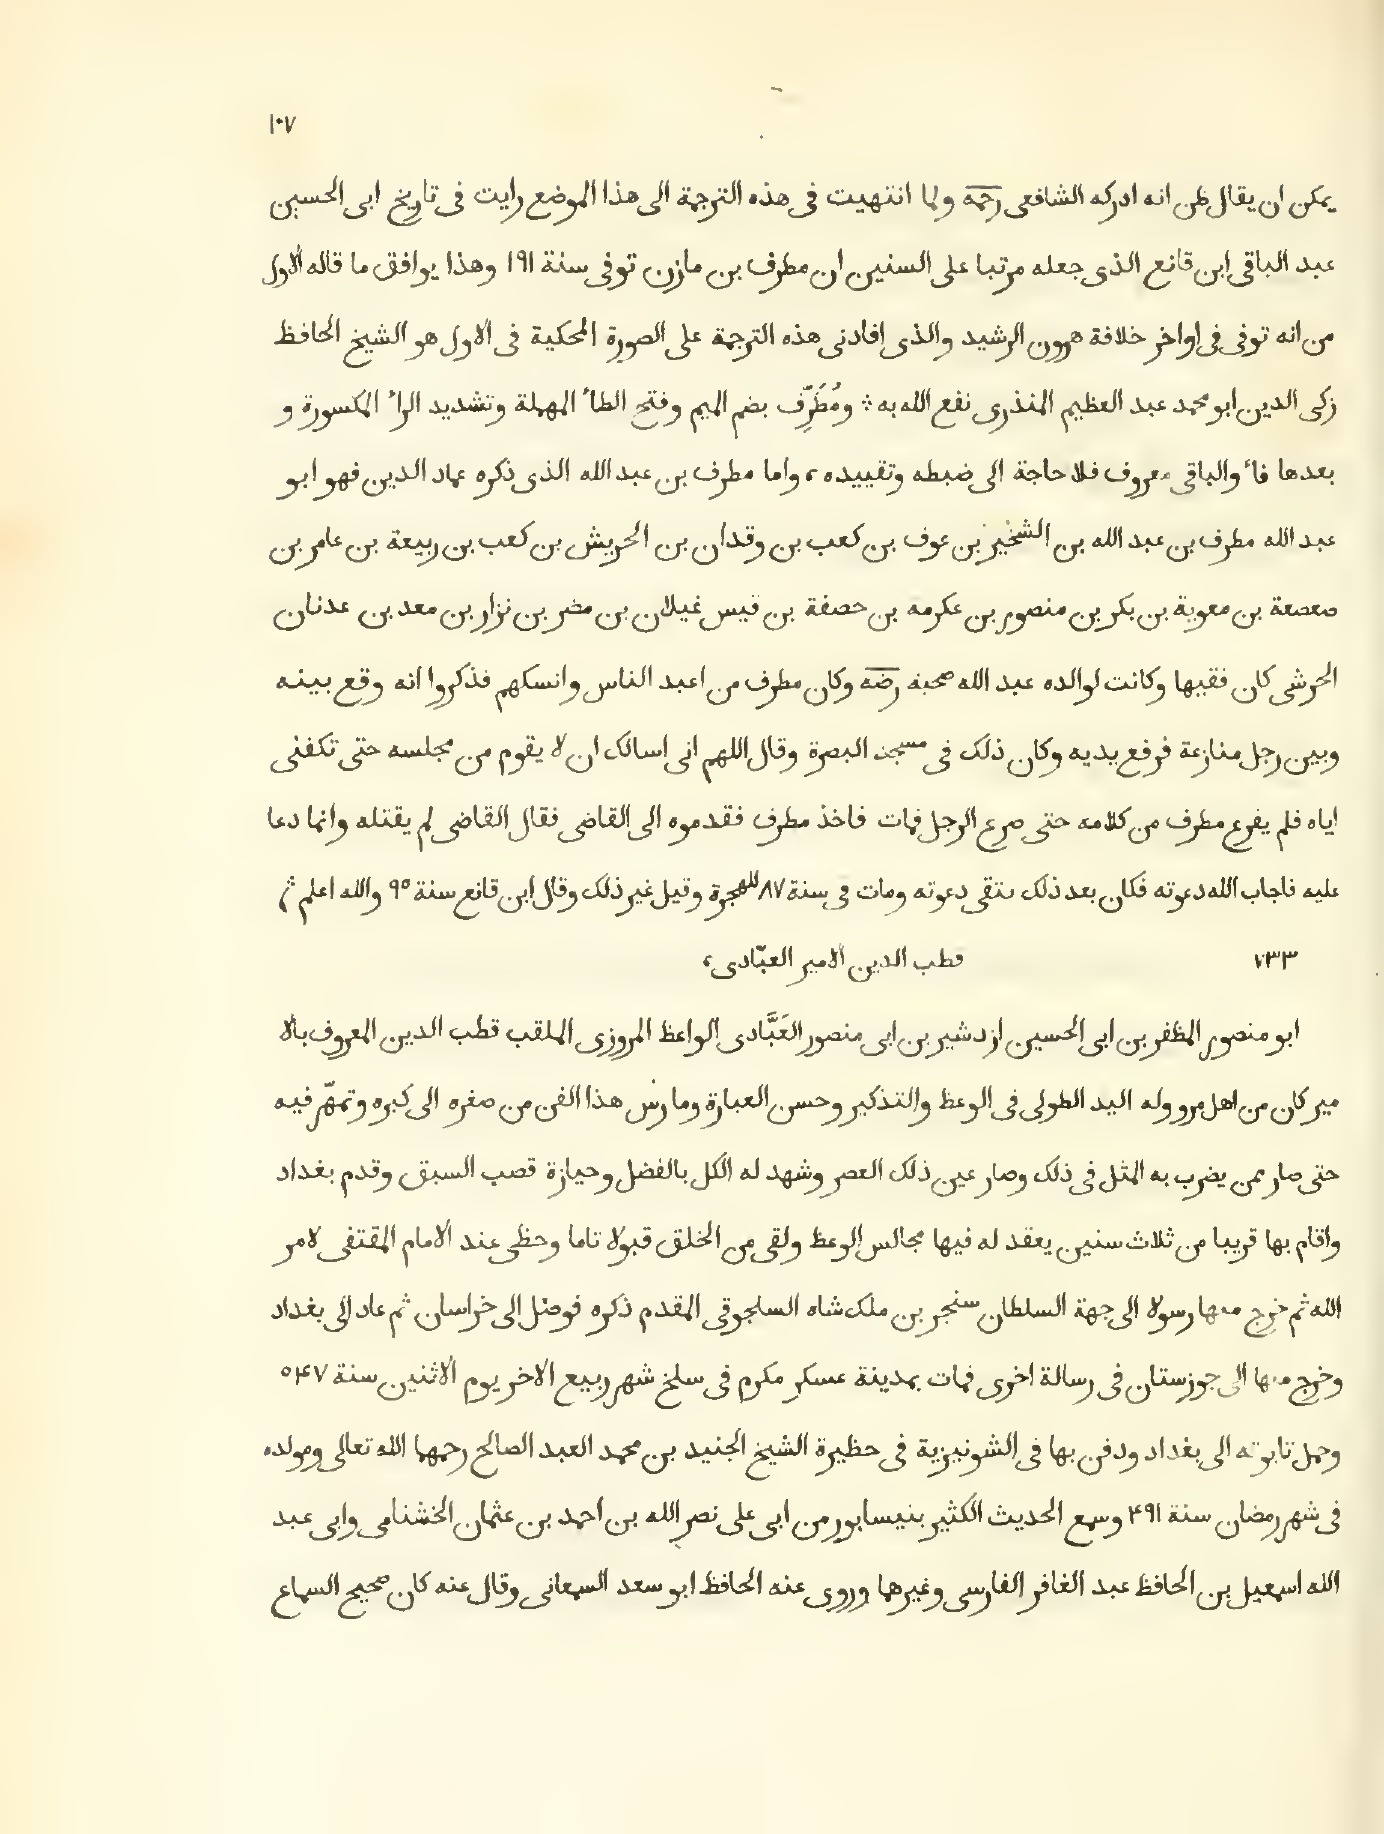 ١٠٧
يمكن ان يقال لمن انه ادركه الشافعى رحمه ولما انتهيت فى هذه الترجمة الى هذا الموضع رايت فى تاريخ ابى الحسين
عبد الباقى ابن قانع الذى جعله مرتبا على السنين ان مطرف بن مازن توفى سنة ١٩١ وهذا يوافق ما قاله الاول
من انه توفى فى اواخر خلافة هرون الرشيد والذى افادنى هذه الترجمة على الصورة المحكية فى الاول هو الشيخ الحافظ
زكى الدين ابو محمد عبد العظيم المنذرى نفع الله به ؞ ومُطَرِّف بضم الميم وفتح الطاء المهملة وتشديد الراء المكسورة و
بعدها فاء والباقى معروف فلا حاجة الى ضبطه وتقييده ، واما مطرف بن عبد الله الذى ذكره عماد الدين فهو ابو
عبد الله مطرف بن عبد الله بن الشخير بن عوف بن كعب بن وقدان بن الحريش بن كعب بن ربيعة بن عامر بن
صعصعة بن معوية بن بكر بن منصور بن عكرمه بن حصفة بن قيس غيلان بن مضر بن نزار بن معد بن عدنان
الحرشى كان فقيها وكانت لوالده عبد الله صحبه رضه وكان مطرف من اعبد الناس وانسكهم فذكروا انه وقع بينه
وبين رجل منازعة فرفع يديه وكان ذلك فى مسجد البصرة وقال اللهم انى اسالك ان لا يقوم من مجلسه حتى تكفنى
اياه فلم يفرغ مطرف من كلامه حتى صرع الرجل فمات فاخذ مطرف فقدموه الى القاضى فقال القاضى لم يقتله وانما دعا
عليه فاجاب الله دعوته فكان بعد ذلك تتقى دعوته ومات فى سنة ٨٧ للهجرة وقيل غير ذلك وقال ابن قانع سنة ٩٥ والله اعلم ؞
٧٣٣ قطب الدين الامير العبّادى ،
ابو منصور المظفر بن ابى الحسين ازدشير بن ابى منصور العَبَّادى الواعظ المروزى الملقب قطب الدين المعروف بالا
مير كان من اهل مرو وله اليد الطولى فى الوعظ والتذكير وحسن العبارة ومارس هذا الفن من صغره الى كبره وتمهّر فيه
حتى صار ممن يضرب به المثل فى ذلك وصار عين ذلك العصر وشهد له الكل بالفضل وحيازة قصب السبق وقدم بغداد
واقام بها قريبا من ثلاث سنين يعقد له فيها مجالس الوعظ ولقى من الخلق قبولا تاما وحظى عند الامام المقتفى لامر
الله ثم خرج منها رسولا الى جهة السلطان سنجر بن ملك شاه السلجوقى المقدم ذكره فوصل الى خراسان ثم عاد الى بغداد
وخرج منها الى جوزستان فى رسالة اخرى فمات بمدينة عسكر مكرم فى سلخ شهر ربيع الاخر يوم الاثنين سنة ٥٤٧
وحمل تابوته الى بغداد ودفن بها فى الشونيزية فى حظيرة الشيخ الجنيد بن محمد العبد الصالح رحمهما الله تعالى ومولده
فى شهر رمضان سنة ٤٩١ وسمع الحديث الكثير بنيسابور من ابى على نصر الله بن احمد بن عثمان الخشنامى وابى عبد
الله اسمعيل بن الحافظ عبد الغافر الفارسى وغيرهما وروى عنه الحافظ ابو سعد السمعانى وقال عنه كان صحيح السماع